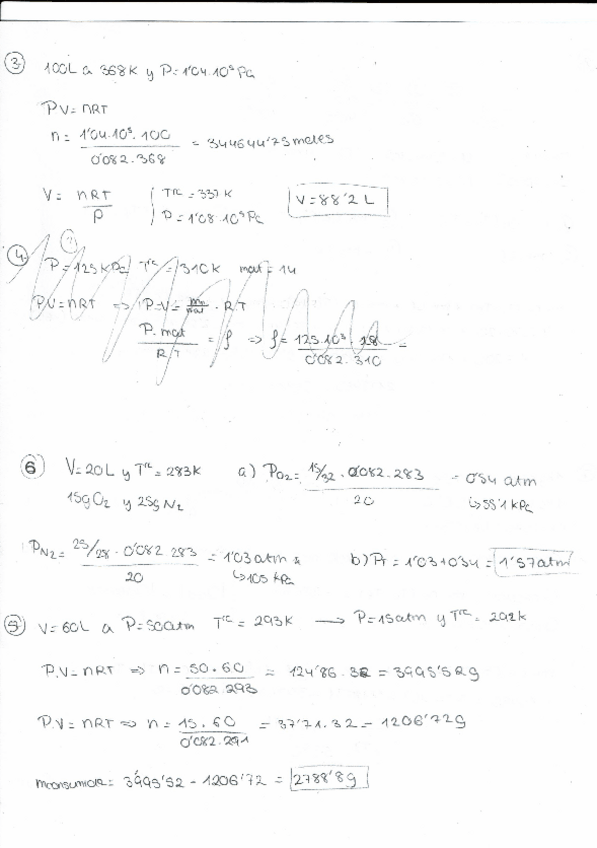 3. 100L a 368K y P=1'04·10⁵Pa
PV=nRT
n= 1'04·10⁵·100 / 0'082·368 = 344644'75 moles
V= nRT / P { Tra=337K P=1'08·10⁵Pa V=88'2 L
4. P=125KPa Tra=310K mat=14
PV=nRT => P·V= m/mat · RT
P·mat / RT = ρ => ρ= 125·10³ · 28 / 0'082·310 =
6 V=20L y Tra=283K a) PO2= 15/32·0'082·283 / 20 = 0'54 atm
15gO2 y 25gN2 ↳55'1 kPa
PN2= 25/28·0'082·283 / 20 = 1'03atm ↳105 kPa b) PT=1'03+0'54= 1'57atm
5. V=60L a P=50atm Tra=293K → P=15atm y Tra=292K
P.V=nRT => n= 50.60 / 0'082.293 = 124'86.32 = 3995'52g
P.V=nRT => n= 15.60 / 0'082.291 = 37'71.32 = 1206'72g
mconsumida= 3995'52 - 1206'72 = 2788'8g